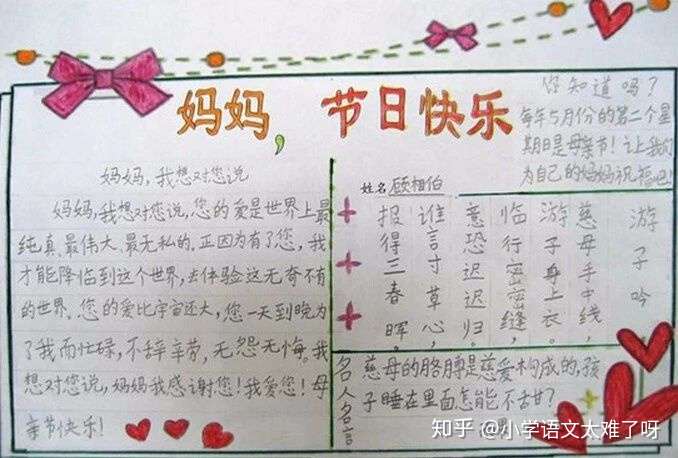 妈妈，节日快乐
你知道吗？
每年5月份的第二个星
期日是母亲节！让我们
为自己的妈妈祝福吧！
妈妈，我想对您说
妈妈，我想对您说，您的爱是世界上最
纯真、最伟大、最无私的。正因为有了您，我
才能降临到这个世界，去体验这无奇不有
的世界。您的爱比宇宙还大，您一天到晚为
了我而忙碌，不辞辛劳，无怨无悔。我
想对您说，妈妈我感谢您！我爱您！母
亲节快乐！
姓名 顾相伯
游子吟
慈母手中线，
游子身上衣。
临行密密缝，
意恐迟迟归。
谁言寸草心，
报得三春晖。
名人名言
慈母的胳膊是慈爱构成的，孩
子睡在里面怎能不甘？
知乎 @小学语文太难了呀